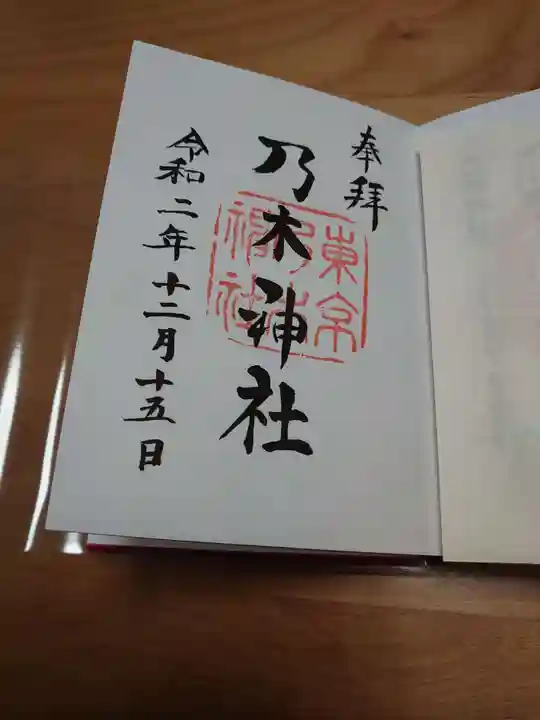 奉拝
乃木神社
東京乃木神社
令和二年十二月十五日